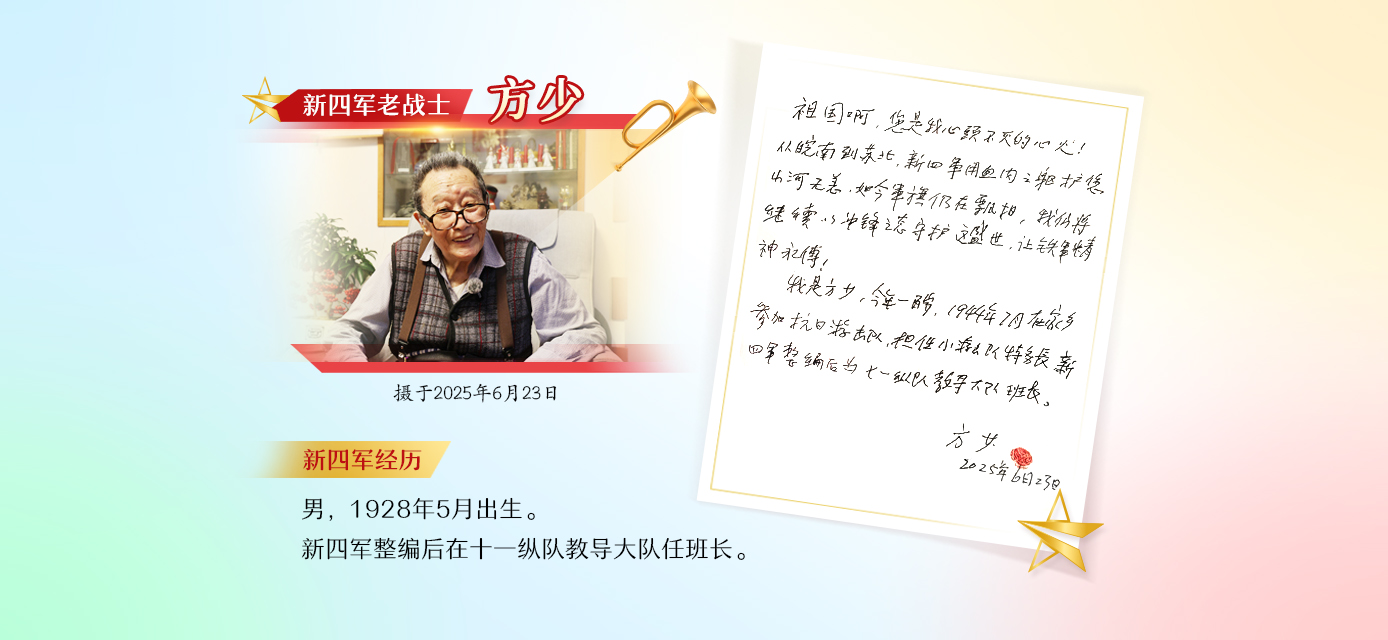 新四军老战士 方少
摄于2025年6月23日
新四军经历
男，1928年5月出生。
新四军整编后在十一纵队教导大队任班长。
祖国啊，您是我心头不灭的心火！
从皖南到苏北，新四军用血肉之躯护您
山河无恙，如今军旗仍在飘扬，我仍将
继续以冲锋之态守护这盛世，让铁军精
神永传！
我是方少，今年一，1944年7月在家乡
参加抗日游击队，担任小队长，新
四军整编后为十一纵队教导大队班长。
方少
2025年6月23日